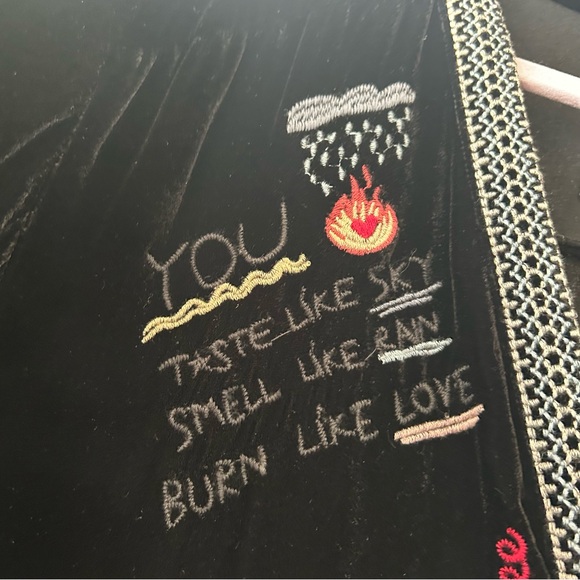 YOU
TASTE LIKE SKY
SMELL LIKE RAIN
BURN LIKE LOVE